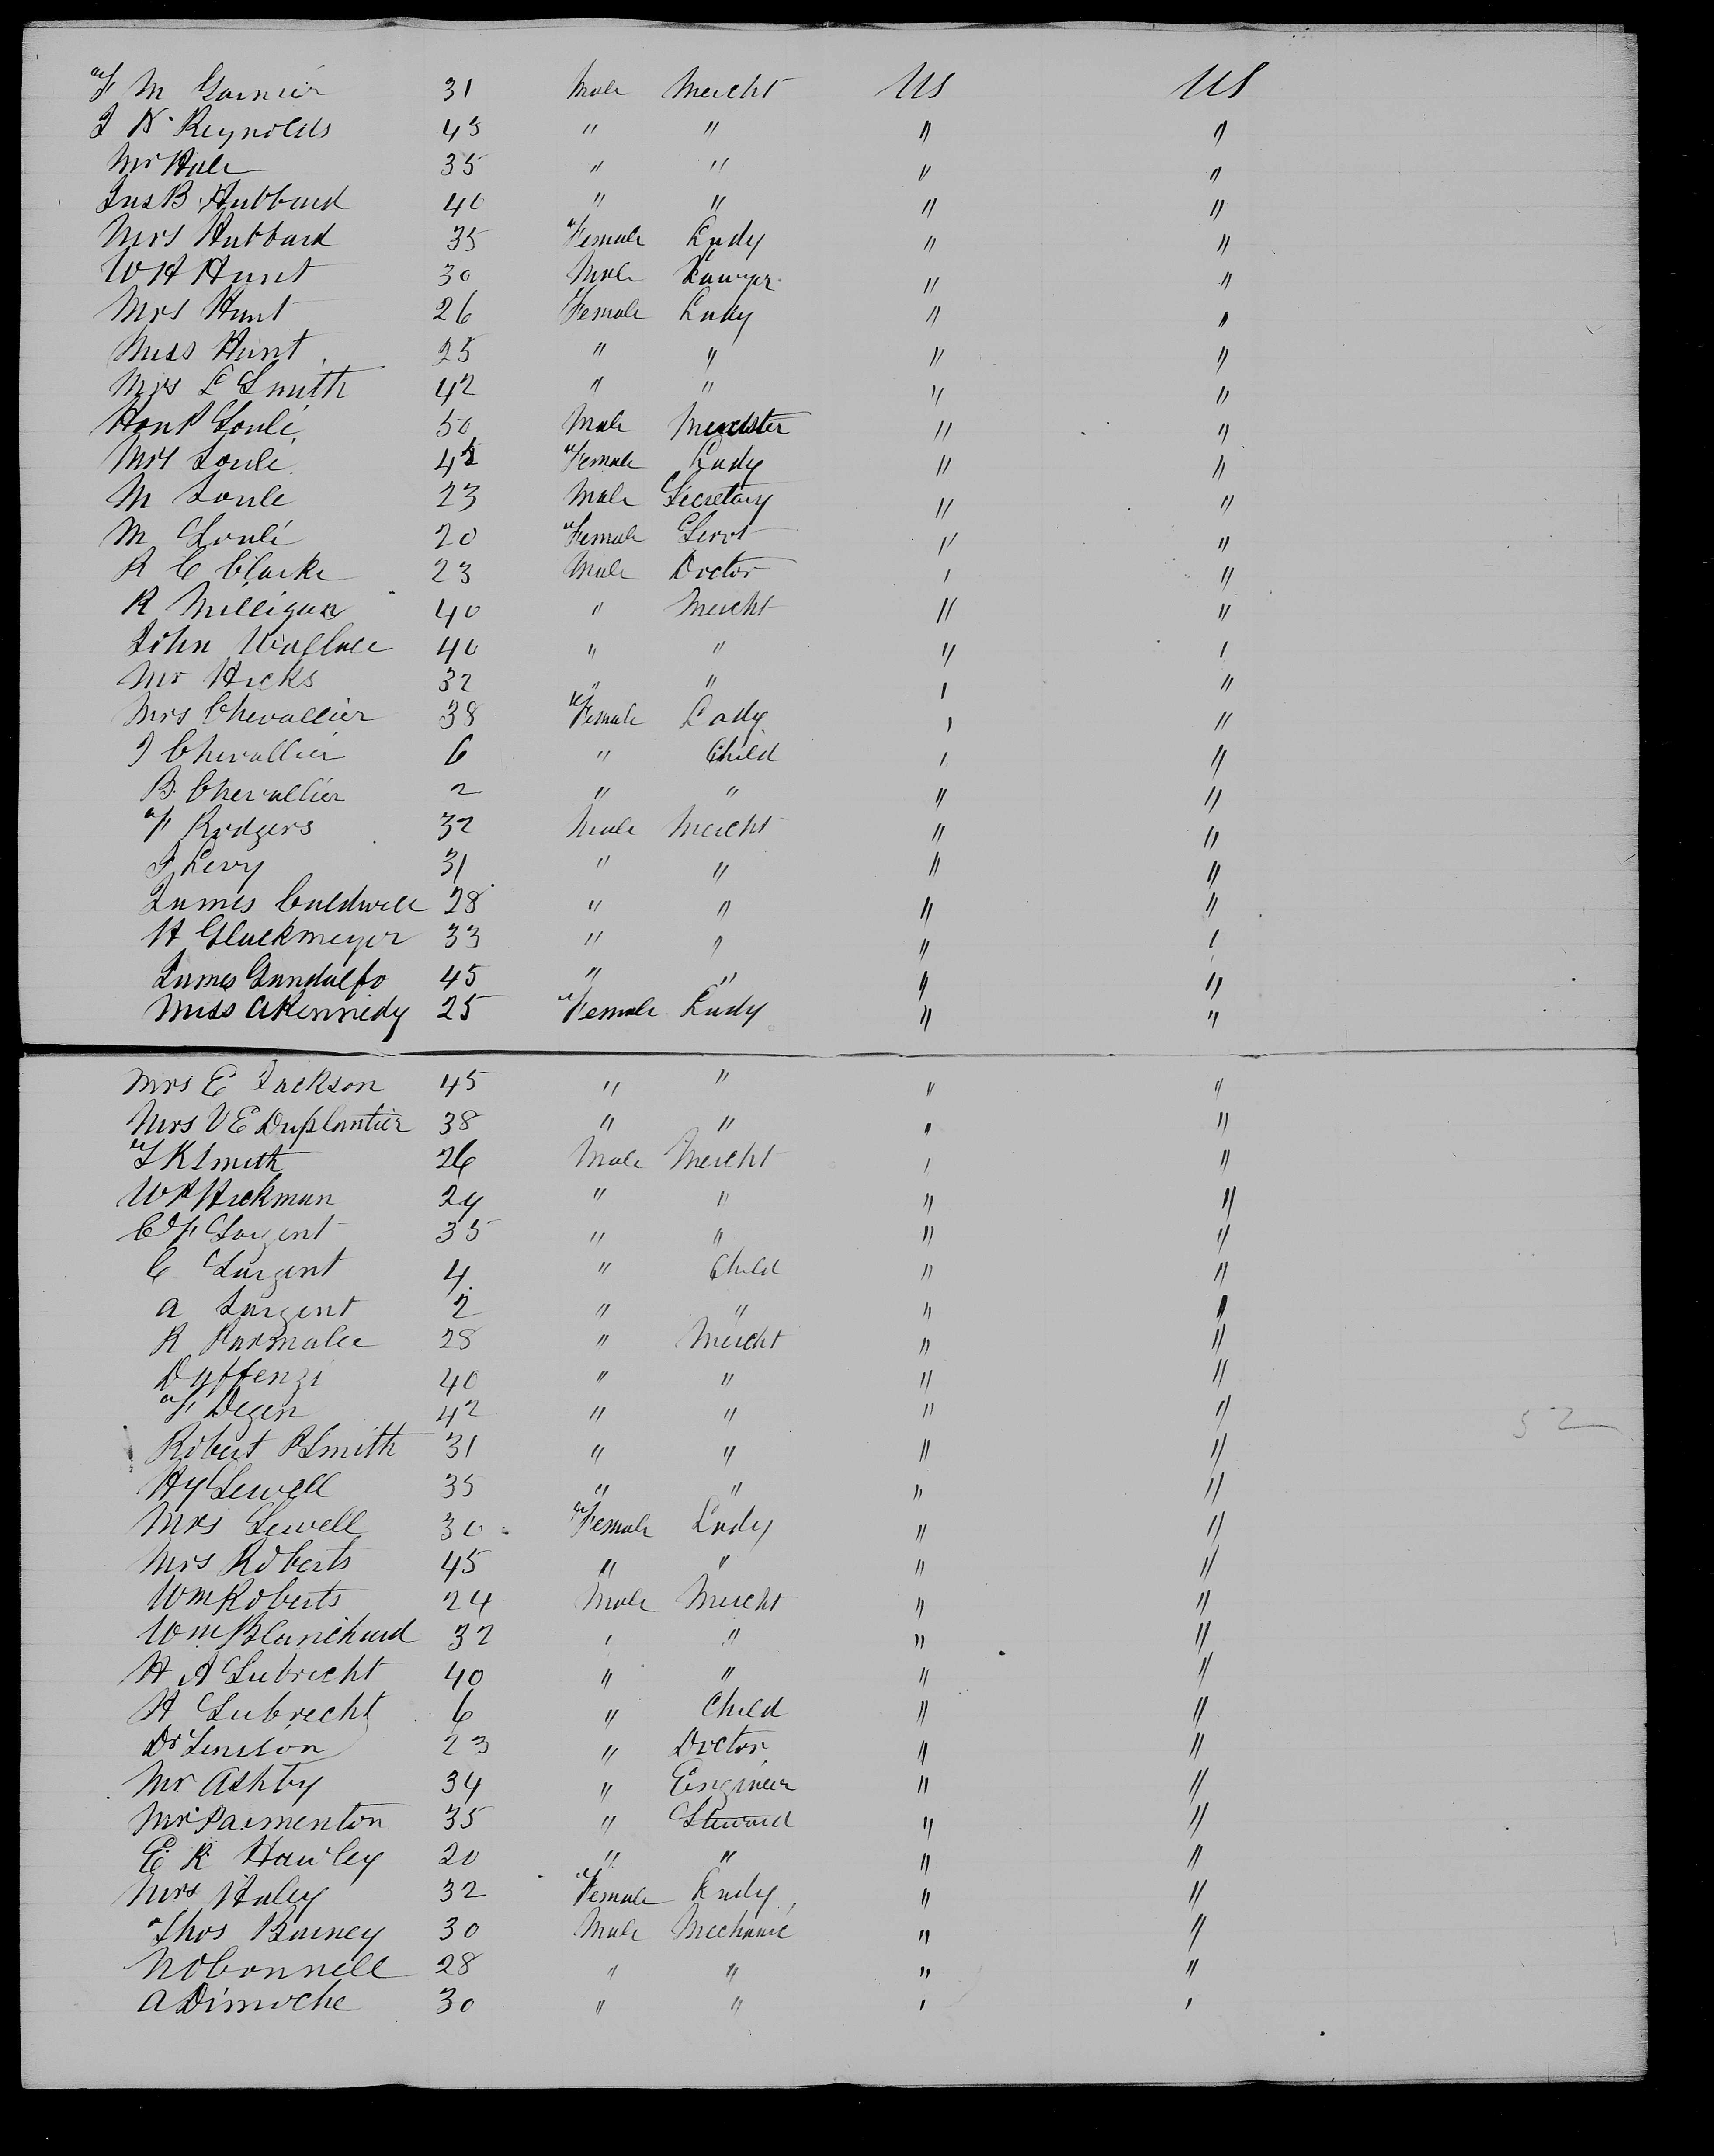 F M Garnier 31 Male Mercht US US
J N Reynolds 45 " " " "
Mr Hale 35 " " " "
Jas B Hubbard 40 " " " "
Mrs Hubbard 35 Female Lady " "
W H Hunt 30 Male Lawyer " "
Mrs Hunt 26 Female Lady " "
Miss Hunt 25 " " " "
Mrs L Smith 42 " " " "
Hon P Soulé 50 Male " "
Mrs Soulé 42 Female Lady " "
M Soule 23 Male Secretary " "
M Soulé 20 Female Servt " "
R C Clarke 23 Male Doctor " "
R Milligan 40 " Mercht " "
John Wallace 40 " " " "
Mr Hicks 32 " " " "
Mrs Chevallier 38 Female Lady " "
J Chevallier 6 " Child " "
B. Chevallier 2 " " " "
F Rodgers 32 Male Mercht " "
J Levy 31 " " " "
James Caldwell 28 " " " "
H Gluckmeyer 33 " " " "
James Gandolfo 45 " " " "
Miss A Kennedy 25 Female Lady " "
Mrs E Jackson 45 " " " "
Mrs V E Duplantier 38 " " " "
T K Smith 26 Male Mercht " "
W H Hickman 29 " " " "
C F Sargent 35 " " " "
C Sargent 4 " Child " "
A Sargent 2 " " " "
R Parmalee 28 " Mercht " "
40 " " " "
F Degen 42 " " " "
Robert P Smith 31 " " " "
Hy Sewell 35 " " " "
Mrs Sewell 30 Female Lady " "
Mrs Roberts 45 " " " "
Wm Roberts 24 Male Mercht " "
Wm Blanchard 32 " " " "
H A Lubrecht 40 " " " "
H Lubrecht 6 " Child " "
Dr 23 " Doctor " "
Mr Ashby 34 " Engineer " "
Mr Parmenton 35 " Steward " "
E R Hawley 20 " " " "
Mrs Haley 32 Female Lady " "
Thos Barney 30 Male Mechanic " "
N OConnell 28 " " " "
A Dimoche 30 " " " "
52